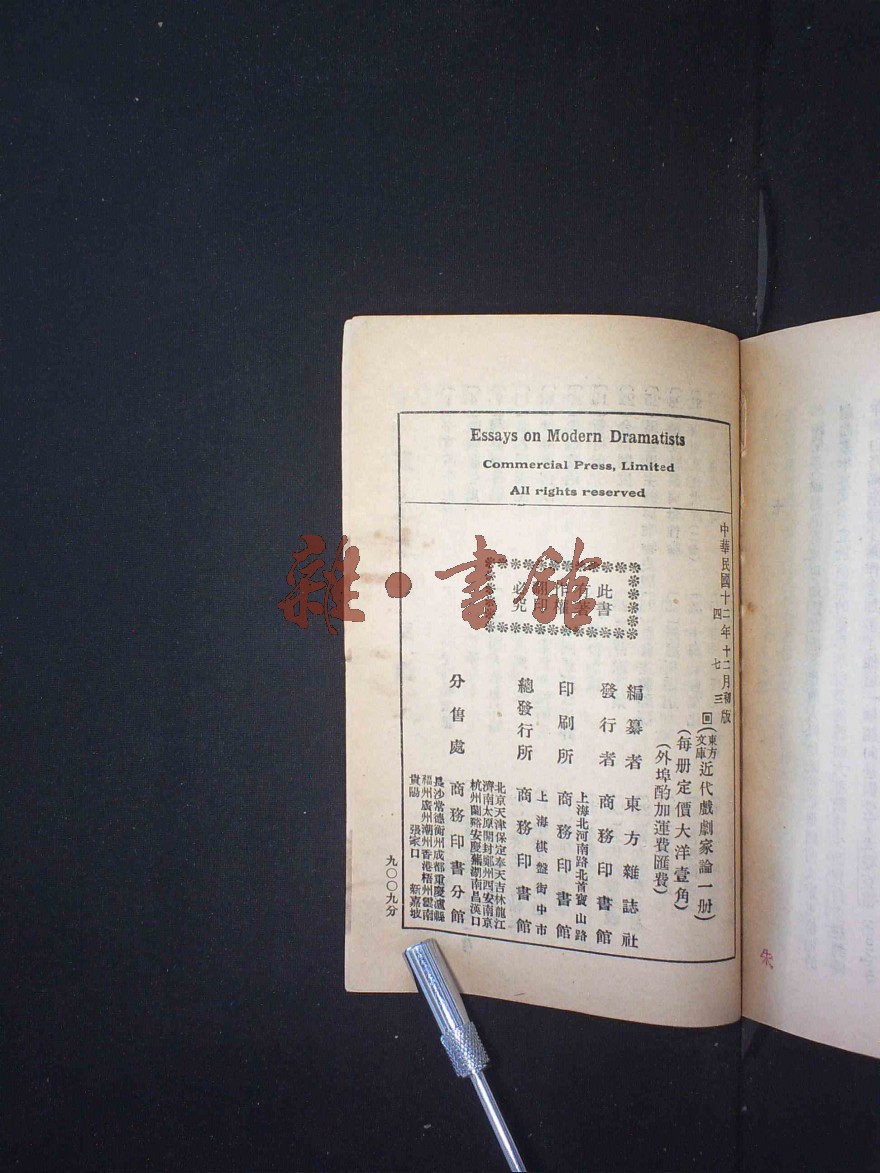 Essays on Modern Dramatists
Commercial Press, Limited
All rights reserved
中華民國十二年十二月初版
四七三
回(東方文庫)近代戲劇家論一册)
(每册定價大洋壹角)
(外埠酌加運費匯費)
此書
有著
作權
翻印
必究
編纂者 東方雜誌社
發行者 商務印書館
上海北河南路北首寶山路
印刷所 商務印書館
上海棋盤街中市
總發行所 商務印書館
北京天津保定奉天吉林龍江
濟南太原開封鄭州西安南京
杭州蘭谿安慶蕪湖南昌漢口
分售處 商務印書分館
長沙常德衡州成都重慶瀘縣
福州廣州潮州香港梧州雲南
貴陽 張家口 新嘉坡
九〇〇九分
朱
雜·書館